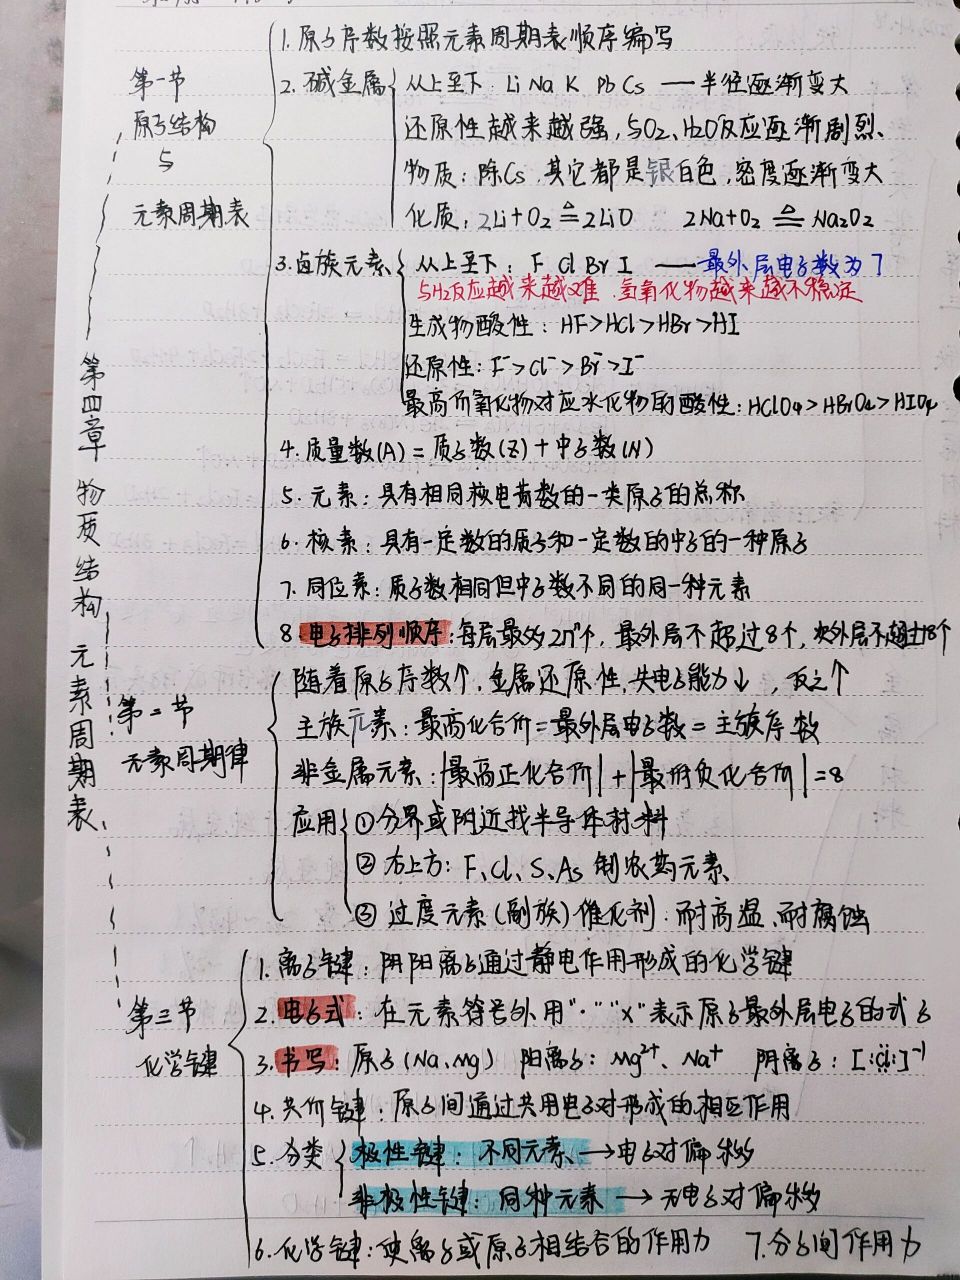 第一节
原子结构
与
元素周期表
1. 原子序数按照元素周期表顺序编写
2. 碱金属 从上至下: Li Na K Pb Cs — 半径逐渐变大
还原性越来越强,与O2、H2O反应逐渐剧烈、
物质:除Cs、其它都是银白色,密度逐渐变大
化质:2Li+O2 ≜ 2LiO 2Na+O2 ≜ Na2O2
3. 卤族元素 从上至下: F Cl Br I — 最外层电子数为7
与H2反应越来越难、氢氧化物越来越不稳定
生成物酸性: HF>HCl>HBr>HI
还原性: F⁻>Cl⁻>Br⁻>I⁻
最高价氧化物对应水化物的酸性: HClO4>HBrO4>HIO4
4. 质量数(A) = 质子数(Z) + 中子数(N)
5. 元素:具有相同核电荷数的一类原子的总称
6. 核素:具有一定数的质子和一定数的中子的一种原子
7. 同位素:质子数相同但中子数不同的同一种元素
8. 电子排列顺序:每层最多2n²个,最外层不超过8个,次外层不超过18个
第四章 物质结构 元素周期表
第二节
元素周期律
随着原子序数↑,金属还原性,失电子能力↓,反之↑
主族元素:最高化合价=最外层电子数=主族序数
非金属元素:|最高正化合价|+|最低负化合价|=8
应用 ①分界或附近找半导体材料
②右上方: F、Cl、S、As 制农药元素、
③过度元素(副族)催化剂、耐高温、耐腐蚀
第三节
化学键
1. 离子键:阴阳离子通过静电作用形成的化学键
2. 电子式:在元素符号外用"·""×"表示原子最外层电子的式子
3. 书写:原子(Na、Mg) 阳离子: Mg²⁺、Na⁺ 阴离子: [:Cl:]⁻¹
4. 共价键:原子间通过共用电子对形成的相互作用
5. 分类 极性键:不同元素、→电子对偏移
非极性键:同种元素 → 无电子对偏移
6. 化学键:使离子或原子相结合的作用力 7. 分子间作用力